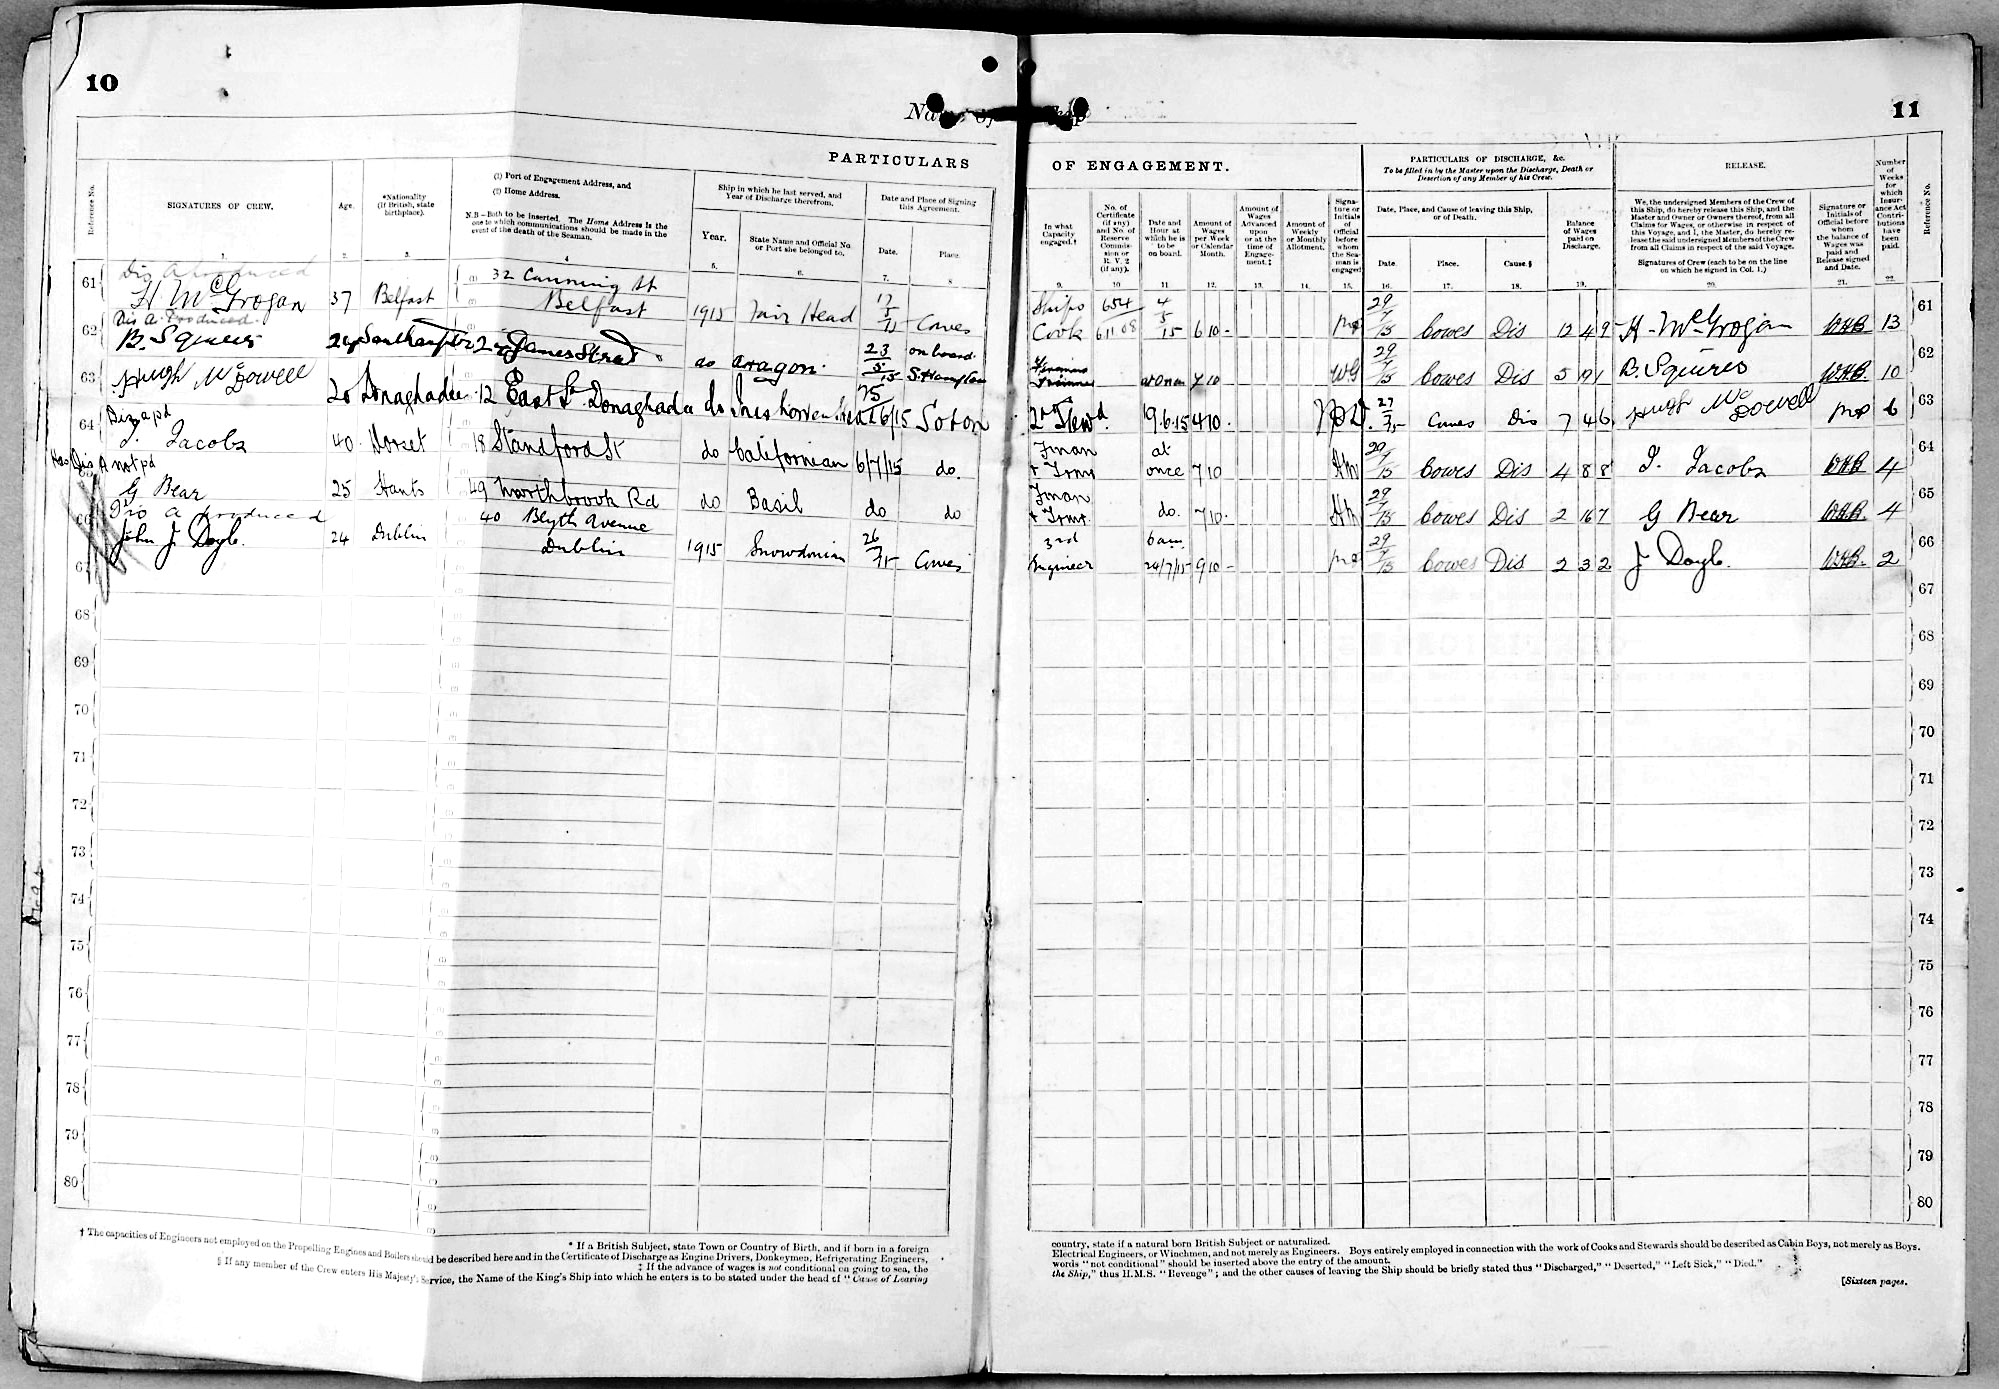 10
11
PARTICULARS OF ENGAGEMENT.
PARTICULARS OF DISCHARGE, &c.
To be filled in by the Master upon the Discharge, Death or Desertion of any Member of his Crew.
RELEASE.
Reference No.
SIGNATURES OF CREW.
Age.
*Nationality (If British, state birthplace).
(1) Port of Engagement Address, and
(2) Home Address.
N.B—Both to be inserted. The Home Address is the one to which communications should be made in the event of the death of the Seaman.
Ship in which he last served, and Year of Discharge therefrom.
Year.
State Name and Official No. or Port she belonged to.
Date and Place of Signing this Agreement.
Date.
Place.
In what Capacity engaged.†
No. of Certificate (if any) and No. of Reserve Commission or R.V.2 (if any).
Date and Hour at which he is to be on board.
Amount of Wages per Week or Calendar Month.
Amount of Wages Advanced upon or at the time of Engagement.‡
Amount of Weekly or Monthly Allotment.
Signature or Initials of Official before whom the Seaman is engaged
Date, Place, and Cause of leaving this Ship, or of Death.
Date.
Place.
Cause.§
Balance of Wages paid on Discharge.
We, the undersigned Members of the Crew of this Ship, do hereby release this Ship, and the Master and Owner or Owners thereof, from all Claims for Wages, or otherwise in respect of this Voyage, and I, the Master, do hereby release the said undersigned Members of the Crew from all Claims in respect of the said Voyage.
Signatures of Crew (each to be on the line on which he signed in Col. 1.)
Signature or Initials of Official before whom the balance of Wages was paid and Release signed and Date.
Number of Weeks for which Insurance Act Contributions have been paid.
Reference No.
61 Dis A produced
H McGrogan 37 Belfast 32 Canning St Belfast 1915 Fair Head 17/5/15 Cowes Ships Cook 654 611.08 4/5/15 6 10 - 29/7/15 Cowes Dis 12 4 9 H. McGrogan W.H.B. 13 61
62 Dis A. Produced.
B. Squires 24 Southampton James Street do Aragon. 23/5/15 on board S.Hampton 7 10 W.G 29/7/15 Cowes Dis 5 19 1 B. Squires W.H.B. 10 62
63 Hugh McDowell 20 Donaghadee 12 East St Donaghadee do 25/6/15 Soton 2nd Stewd. 19.6.15 4 10 - 27/7/15 Cowes Dis 7 4 6 Hugh McDowell 6 63
64 Dis a pd
J. Jacobs 40 Dorset 18 Standford St do Californian 6/7/15 do. Fman + Trmr at once 7 10 29/7/15 Cowes Dis 4 8 8 J. Jacobs W.H.B. 4 64
Has Dis A not pd
G Bear 25 Hants 49 Northbrook Rd do Basil do do Fman + Trmr. do. 7 10 - 29/7/15 Cowes Dis 2 16 7 G Bear W.H.B. 4 65
Dis A produced
John J Doyle. 24 Dublin 40 Blyth Avenue Dublin 1915 Snowdonian 26/7/15 Cowes 3rd Engineer 6am 24/7/15 9 10 - 29/7/15 Cowes Dis 2 3 2 J Doyle. W.H.B. 2 66
67 67
68 68
69 69
70 70
71 71
72 72
73 73
74 74
75 75
76 76
77 77
78 78
79 79
80 80
* If a British Subject, state Town or Country of Birth, and if born in a foreign country, state if a natural born British Subject or naturalized.
† The capacities of Engineers not employed on the Propelling Engines and Boilers should be described here and in the Certificate of Discharge as Engine Drivers, Donkeymen, Refrigerating Engineers, Electrical Engineers, or Winchmen, and not merely as Engineers. Boys entirely employed in connection with the work of Cooks and Stewards should be described as Cabin Boys, not merely as Boys.
‡ If the advance of wages is not conditional on going to sea, the words "not conditional" should be inserted above the entry of the amount.
§ If any member of the Crew enters His Majesty's Service, the Name of the King's Ship into which he enters is to be stated under the head of "Cause of Leaving the Ship," thus H.M.S. "Revenge"; and the other causes of leaving the Ship should be briefly stated thus "Discharged," "Deserted," "Left Sick," "Died."
[Sixteen pages.